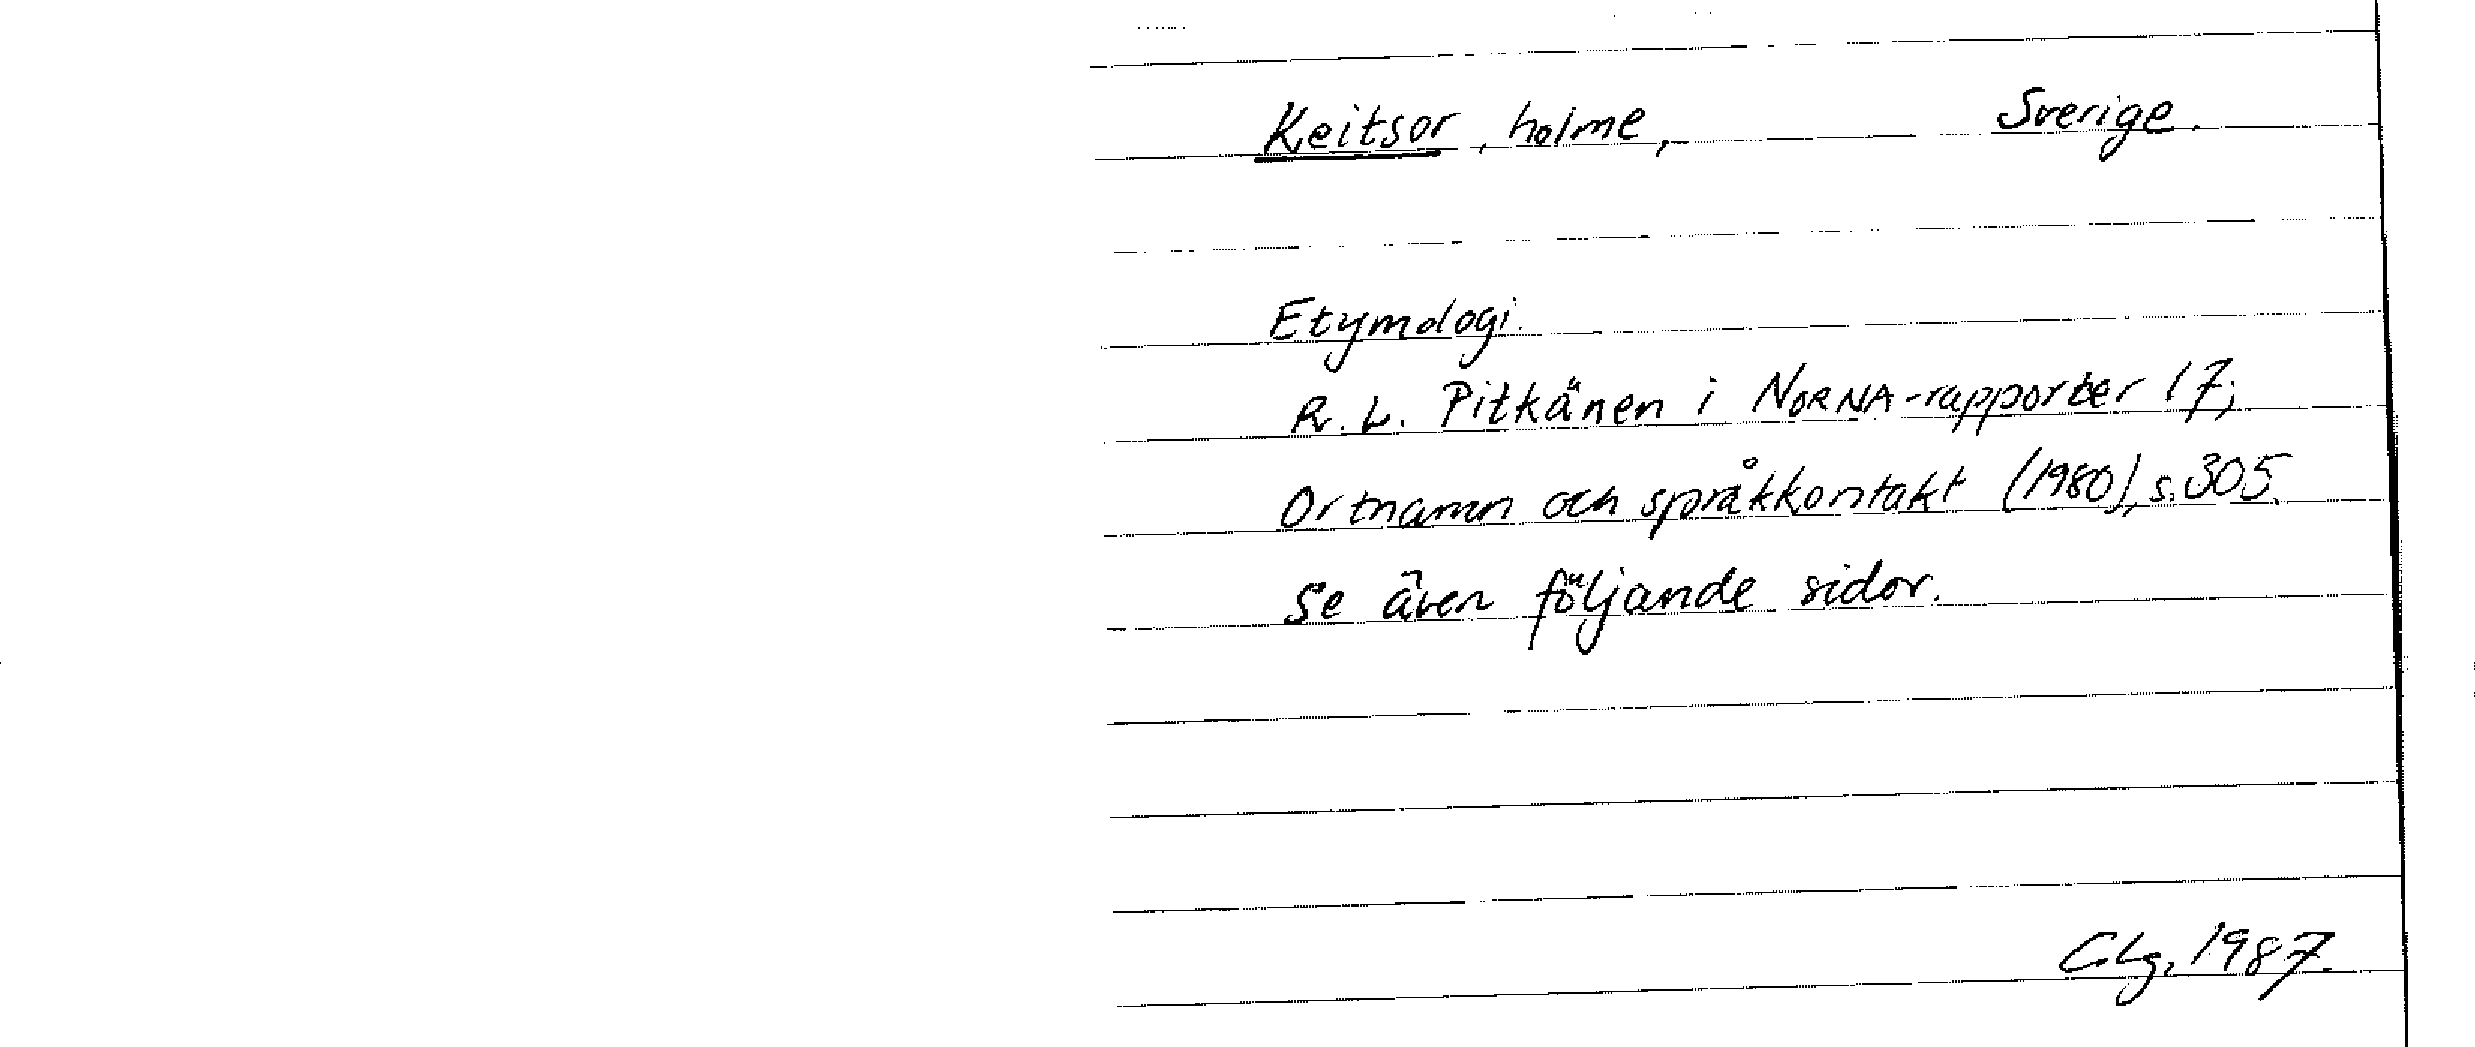 Keitsor, holme, Sverige.
Etymologi.
R. L. Pitkänen i NORNA-rapporter 17;
Ortnamn och språkkontakt (1980), s. 305.
Se även följande sidor.
CLg, 1987.